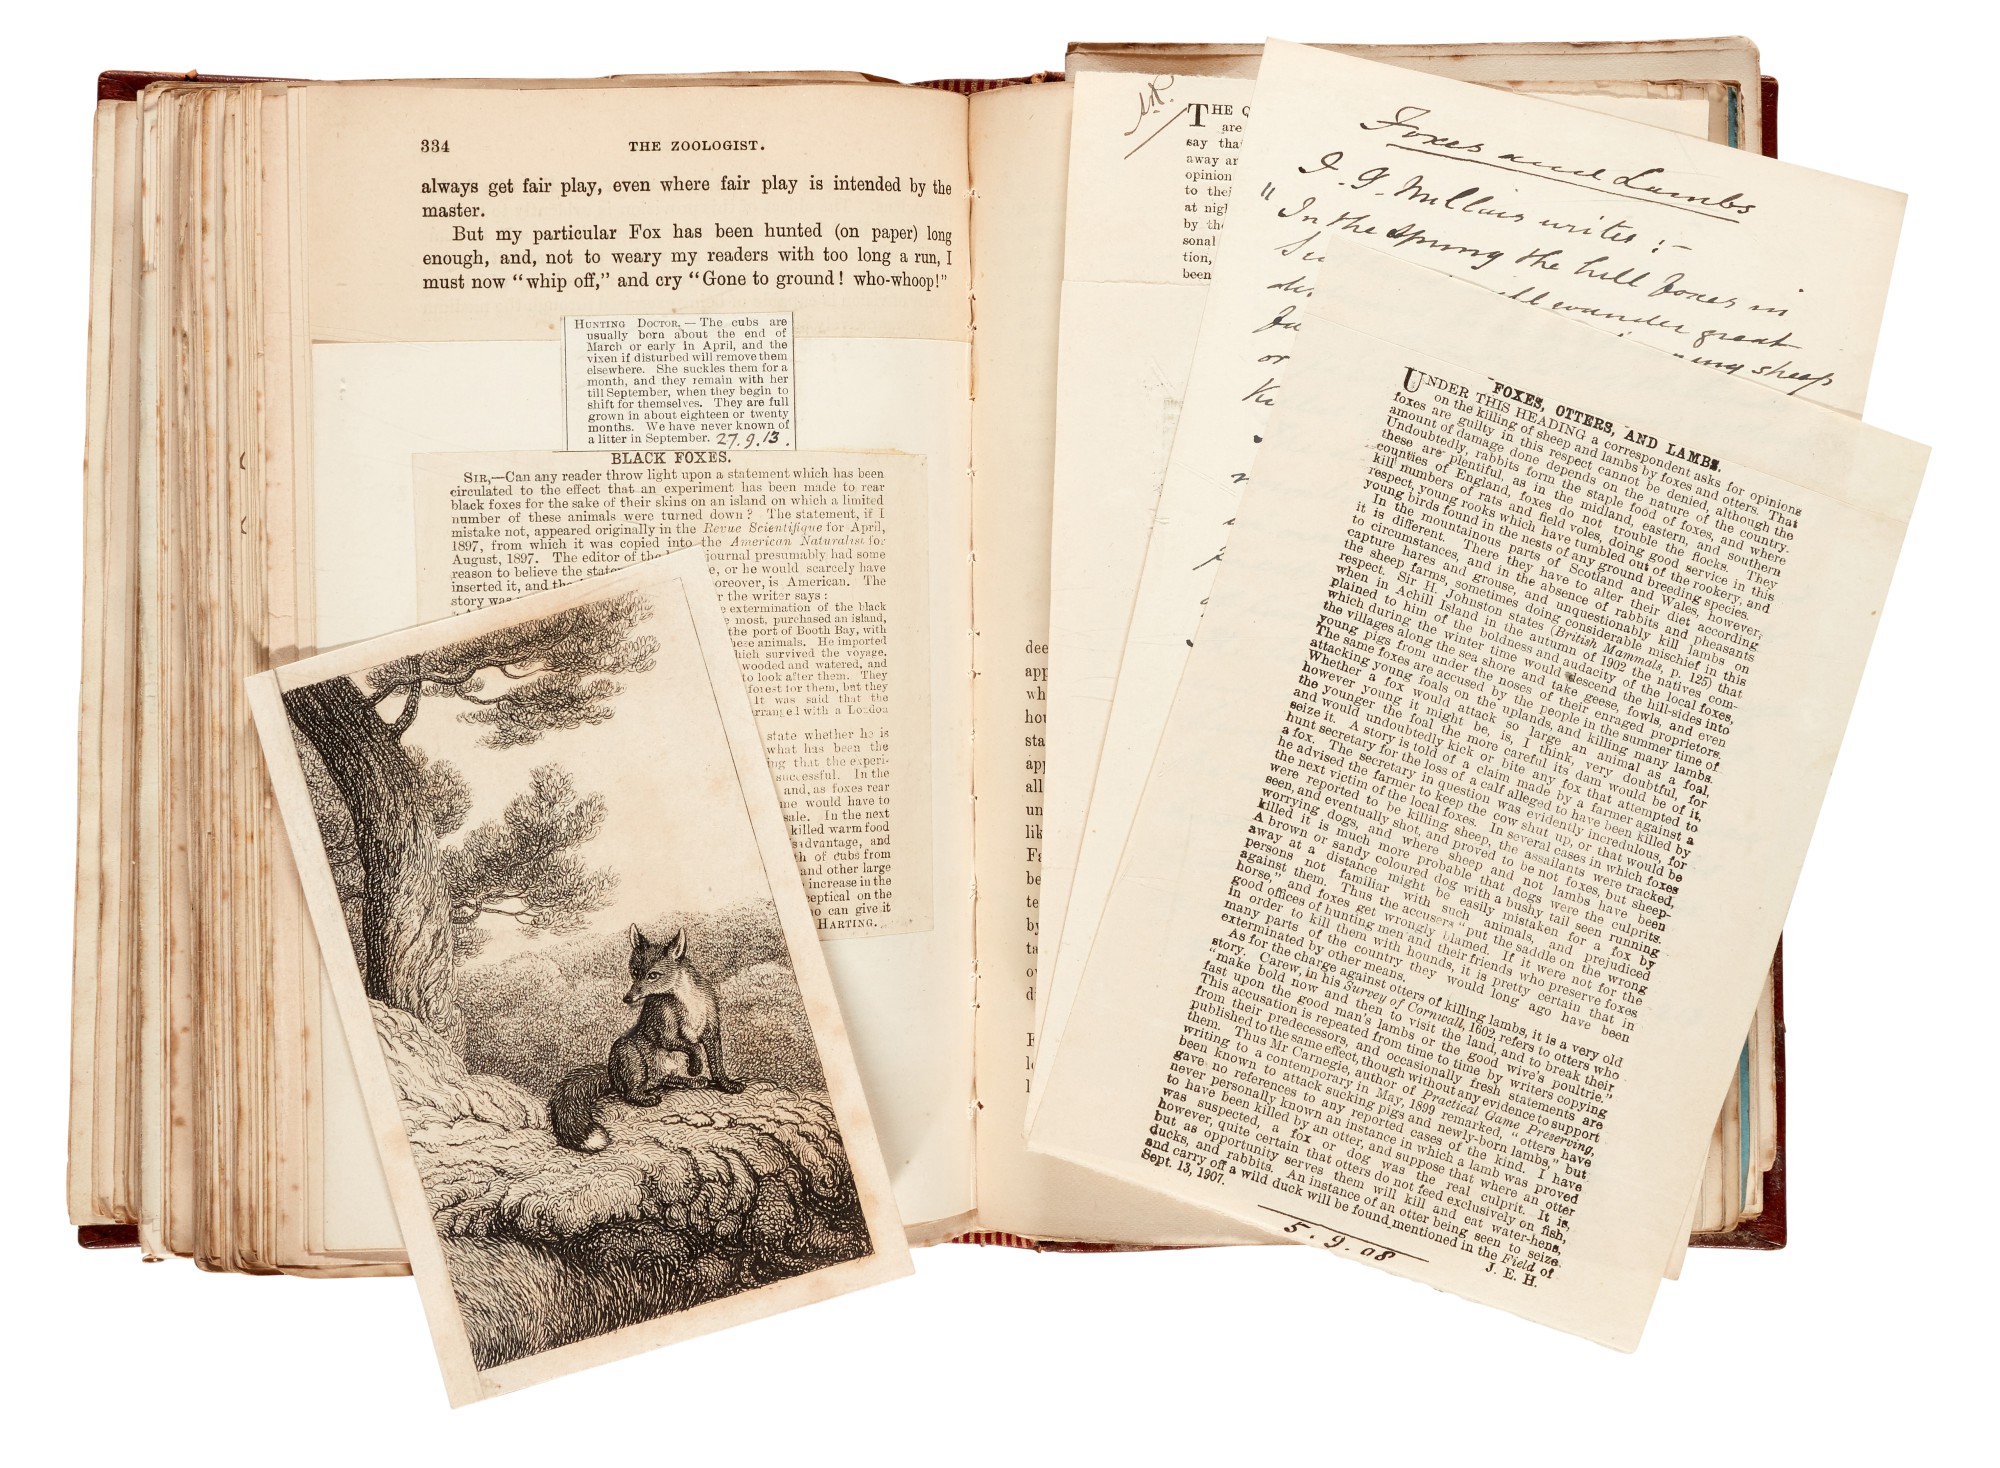 334
THE ZOOLOGIST.
always get fair play, even where fair play is intended by the
master.
But my particular Fox has been hunted (on paper) long
enough, and, not to weary my readers with too long a run, I
must now "whip off," and cry "Gone to ground! who-whoop!"
HUNTING DOCTOR.—The cubs are
usually born about the end of
March or early in April, and the
vixen if disturbed will remove them
elsewhere. She suckles them for a
month, and they remain with her
till September, when they begin to
shift for themselves. They are full
grown in about eighteen or twenty
months. We have never known of
a litter in September. 27.9.13.
BLACK FOXES.
SIR,—Can any reader throw light upon a statement which has been
circulated to the effect that an experiment has been made to rear
black foxes for the sake of their skins on an island on which a limited
number of these animals were turned down? The statement, if I
mistake not, appeared originally in the Revue Scientifique for April,
1897, from which it was copied into the American Naturalist for
August, 1897. The editor of the journal presumably had some
reason to believe the or he would scarcely have
inserted it, and is American. The
story was the writer says:
extermination of the black
most, purchased an island,
the port of Booth Bay, with
these animals. He imported
which survived the voyage.
wooded and watered, and
to look after them. They
forest for them, but they
It was said that the
arranged with a London
state whether he is
what has been the
that the experi-
successful. In the
and, as foxes rear
would have to
sale. In the next
killed warm food
and
of cubs from
and other large
increase in the
on the
can give it
HARTING.
THE
are
say
away
opinion
to
at
by
tion,
been
Foxes and Lambs
J. G. Millais writes:-
"In the spring the hill foxes in
wander great
sheep
or
FOXES, OTTERS, AND LAMBS.
UNDER THIS HEADING a correspondent asks for opinions
on the killing of sheep and lambs by foxes and otters. That
foxes are guilty in this respect cannot be denied, although the
amount of damage done depends on the nature of the country.
Undoubtedly, rabbits form the staple food of foxes, and where
these are plentiful, as in the midland, eastern, and southern
counties of England, foxes do not trouble the flocks. They
kill numbers of rats and field voles, doing good service in this
respect, young rooks which have tumbled out of the rookery, and
young birds found in the nests of any ground breeding species.
In the mountainous parts of Scotland and Wales, however,
it is different. There they have to alter their diet according
to circumstances, and in the absence of rabbits and pheasants
capture hares and grouse, and unquestionably kill lambs on
the sheep farms, sometimes doing considerable mischief in this
respect. Sir H. Johnston states (British Mammals, p. 125) that
when in Achill Island in the autumn of 1902 the natives com-
plained to him of the boldness and audacity of the local foxes,
which during the winter time would descend the hill-sides into
the villages along the sea shore and take geese, fowls, and even
young pigs from under the noses of their enraged proprietors.
The same foxes are accused by the people in the summer time of
attacking young foals on the uplands, and killing many lambs.
Whether a fox would attack so large an animal as a foal,
however young it might be, is, I think, very doubtful, for
the younger the foal the more careful its dam would be of it,
and would undoubtedly kick or bite any fox that attempted to
seize it. A story is told of a claim made by a farmer against a
hunt secretary for the loss of a calf alleged to have been killed by
a fox. The secretary in question was evidently incredulous, for
he advised the farmer to keep the cow shut up, or that would be
the next victim of the local foxes. In several cases in which foxes
were reported to be killing sheep, the assailants were tracked,
seen, and eventually shot, and proved to be not foxes, but sheep-
worrying dogs, and where sheep and not lambs have been
killed it is much more probable that dogs were the culprits.
A brown or sandy coloured dog with a bushy tail seen running
away at a distance might be easily mistaken for a fox by
persons not familiar with such animals, and prejudiced
against them. Thus the accusers "put the saddle on the wrong
horse," and foxes get wrongly blamed. If it were not for the
good offices of hunting men and their friends who preserve foxes
in order to kill them with hounds, it is pretty certain that in
many parts of the country they would long ago have been
exterminated by other means.
As for the charge against otters of killing lambs, it is a very old
story. Carew, in his Survey of Cornwall, 1602, refers to otters who
"make bold now and then to visit the land, and to break their
fast upon the good man's lambs or the good wive's poultrie."
This accusation is repeated from time to time by writers copying
from their predecessors, and occasionally fresh statements are
published to the same effect, though without any evidence to support
them. Thus Mr Carnegie, author of Practical Game Preserving,
writing to a contemporary in May, 1899 remarked, "otters have
been known to attack sucking pigs and newly-born lambs," but
gave no references to any reported cases of the kind. I have
never personally known an instance in which a lamb was proved
to have been killed by an otter, and suppose that where an otter
was suspected, a fox or dog was the real culprit. It is,
however, quite certain that otters do not feed exclusively on fish,
but as opportunity serves them will kill and eat water-hens,
ducks, and rabbits. An instance of an otter being seen to seize
and carry off a wild duck will be found mentioned in the Field of
Sept. 13, 1907.
J. E. H.
5.9.08